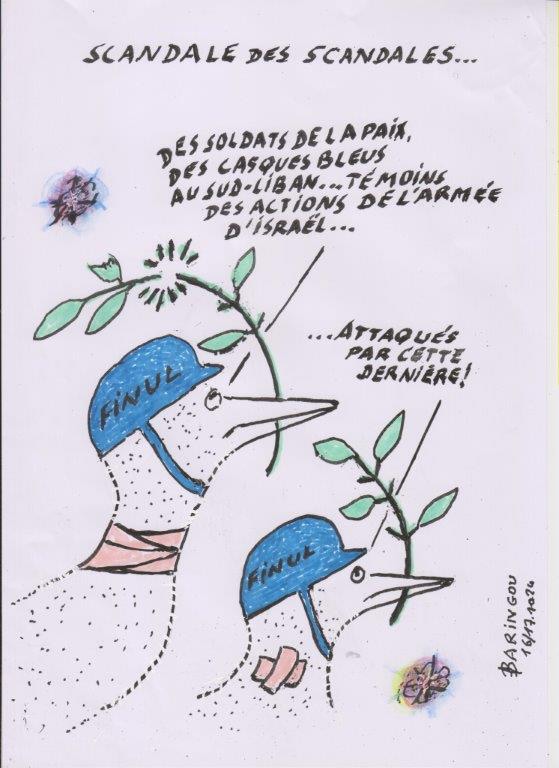 SCANDALE DES SCANDALES...
DES SOLDATS DE LA PAIX,
DES CASQUES BLEUS
AU SUD-LIBAN... TÉMOINS
DES ACTIONS DE L'ARMÉE
D'ISRAËL...
...ATTAQUÉS
PAR CETTE
DERNIÈRE!
FINUL
FINUL
BARINGOU
16/17.1024